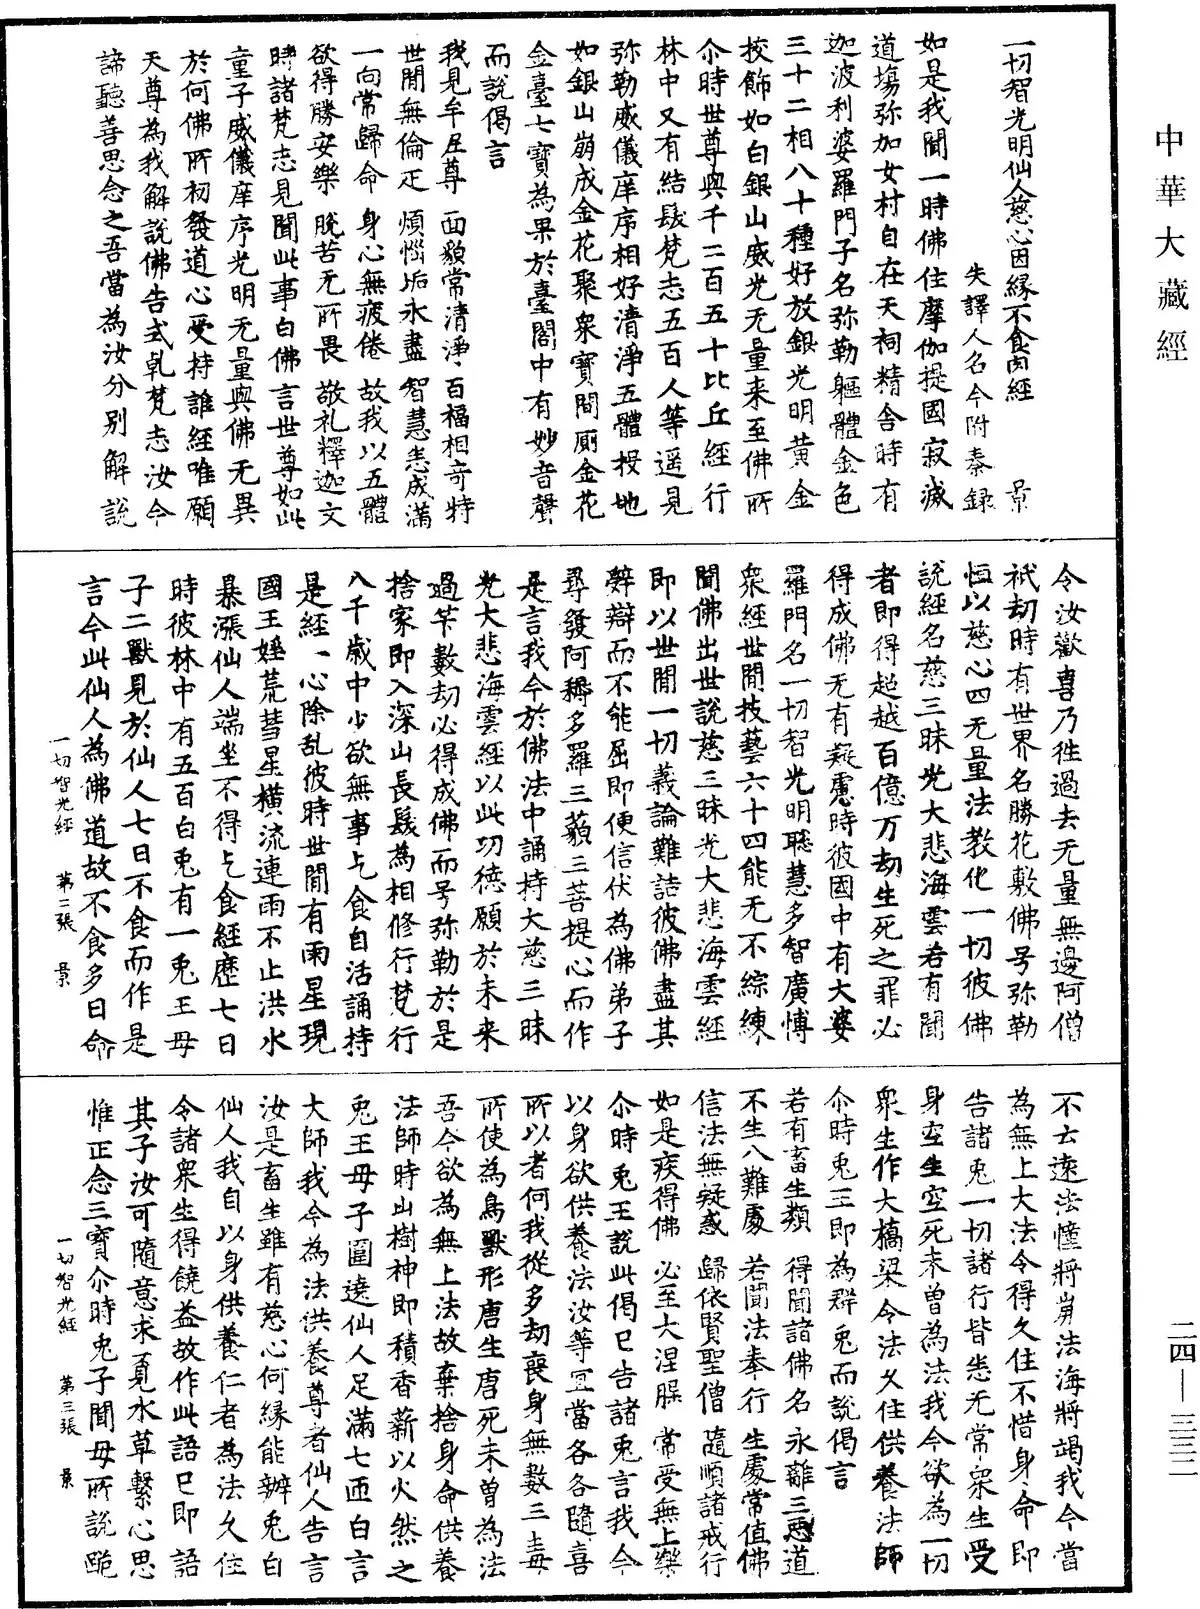 中華大藏經
一切智光明仙人慈心因緣不食肉經　景
失譯人名今附秦錄
如是我聞一時佛住摩伽提國寂滅
道場弥加女村自在天祠精舍時有
迦波利婆羅門子名弥勒軀體金色
三十二相八十種好放銀光明黄金
挍飾如白銀山威光无量来至佛所
尒時世尊與千二百五十比丘經行
林中又有結髮梵志五百人等遥見
弥勒威儀庠序相好清淨五體投地
如銀山崩成金花聚衆寳間厠金花
金臺七寳為果於臺閣中有妙音聲
而說偈言
我見牟尼尊　面貌常清淨　百福相奇特
世間無倫疋　煩惱垢永盡　智慧悉成滿
一向常歸命　身心無疲倦　故我以五體
欲得勝安樂　脫苦无所畏　敬礼釋迦文
時諸梵志見聞此事白佛言世尊如此
童子威儀庠序光明无量與佛无異
於何佛所初發道心受持誰經唯願
天尊為我解說佛告式乹梵志汝今
諦聽善思念之吾當為汝分别解說
令汝歡喜乃徃過去无量無邊阿僧
祇劫時有世界名勝花敷佛号弥勒
恒以慈心四无量法教化一切彼佛
說經名慈三昧光大悲海雲若有聞
者即得超越百億万劫生死之罪必
得成佛无有疑慮時彼國中有大婆
羅門名一切智光明聡慧多智廣愽
衆經世間技藝六十四能无不綜練
聞佛出世說慈三昧光大悲海雲經
即以世間一切義論難詰彼佛盡其
辤辯而不能屈即便信伏為佛弟子
尋發阿耨多羅三藐三菩提心而作
是言我今於佛法中誦持大慈三昧
光大悲海雲經以此功德願於未来
過筭數劫必得成佛而号弥勒於是
捨家即入深山長髮為相修行梵行
八千歲中少欲無事乞食自活誦持
是經一心除乱彼時世間有雨星現
國王婬荒彗星橫流連雨不止洪水
暴漲仙人端坐不得乞食經歷七日
時彼林中有五百白兎有一兎王母
子二獸見於仙人七日不食而作是
言今此仙人為佛道故不食多日命
一切智光經　第二張　景
不云遠法憧將崩法海將竭我今當
為無上大法令得久住不惜身命即
告諸兎一切諸行皆悉无常衆生受
身空生空死未曾為法我今欲為一切
衆生作大橋梁令法久住供養法師
尒時兎王即為群兎而說偈言
若有畜生類　得聞諸佛名　永離三惡道
不生八難處　若聞法奉行　生處常值佛
信法無疑惑　歸依賢聖僧　隨順諸戒行
如是疾得佛　必至大涅槃　常受無上樂
尒時兎王說此偈已告諸兎言我今
以身欲供養法汝等宜當各各隨喜
所以者何我從多劫喪身無數三毒
所使為鳥獸形唐生唐死未曾為法
吾今欲為無上法故棄捨身命供養
法師時山樹神即積香薪以火然之
兎王母子圍遶仙人足滿七匝白言
大師我今為法供養尊者仙人告言
汝是畜生雖有慈心何緣能辦兎白
仙人我自以身供養仁者為法久住
令諸衆生得饒益故作此語已即語
其子汝可隨意求覓水草繫心思
惟正念三寳尒時兎子聞母所說跪
一切智光經　第三張　景
二四—三三二